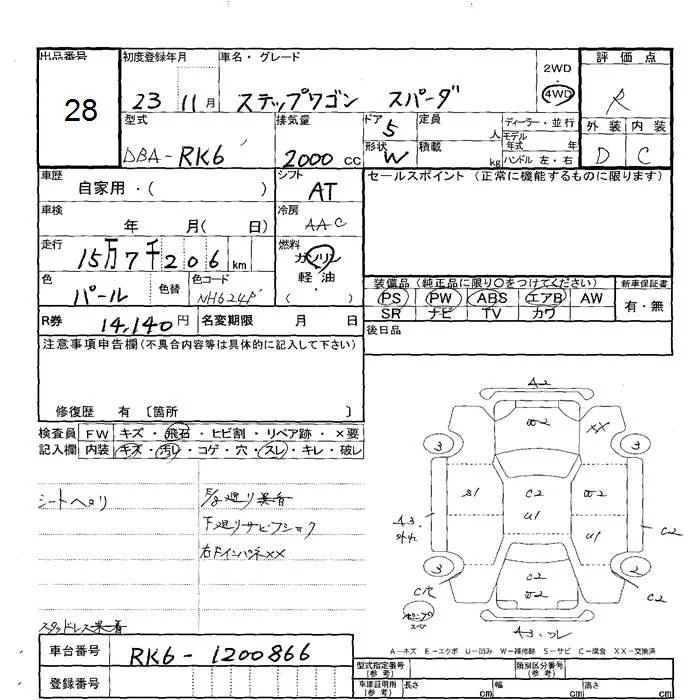 出品番号 28
初度登録年月 23 11月
車名・グレード ステップワゴン スパーダ
2WD
4WD
評価点 R
外装 D 内装 C
型式 DBA-RK6
排気量 2000cc
ドア 5
形状 W
定員 人
積載 kg
ディーラー・並行
モデル年式 年
ハンドル 左・右
車歴 自家用・( )
シフト AT
セールスポイント(正常に機能するものに限ります)
車検 年 月( 日)
冷房 AAC
走行 15万7千206km
燃料 ガソリン・軽油( )
色 パール 色替 色コード NH624P
装備品(純正品に限り○をつけてください)
PS PW ABS エアB AW
SR ナビ TV カワ
新車保証書 有・無
R券 14,140円 名変期限 月 日
後日品
注意事項申告欄(不具合内容等は具体的に記入して下さい)
修復歴 有 〔箇所 〕
検査員記入欄
FW キズ・飛石・ヒビ割・リペア跡・×要
内装 キズ・汚レ・コゲ・穴・スレ・キレ・破レ
シートヘタリ
下廻りサビフショク
右FインパネXX
A2
W2
XX
3
3
S1
C2
W2
U1
U1
A3
C2
3
2
C2
W2
C穴
C2
A3.フレ
A-キズ E-エクボ U-凹み W-補修跡 S-サビ C-腐食 XX-交換済
車台番号 RK6-1200866
登録番号
型式指定番号(参考) 類別区分番号(参考)
車庫証明用(参考) 長さ cm 幅 cm 高さ cm